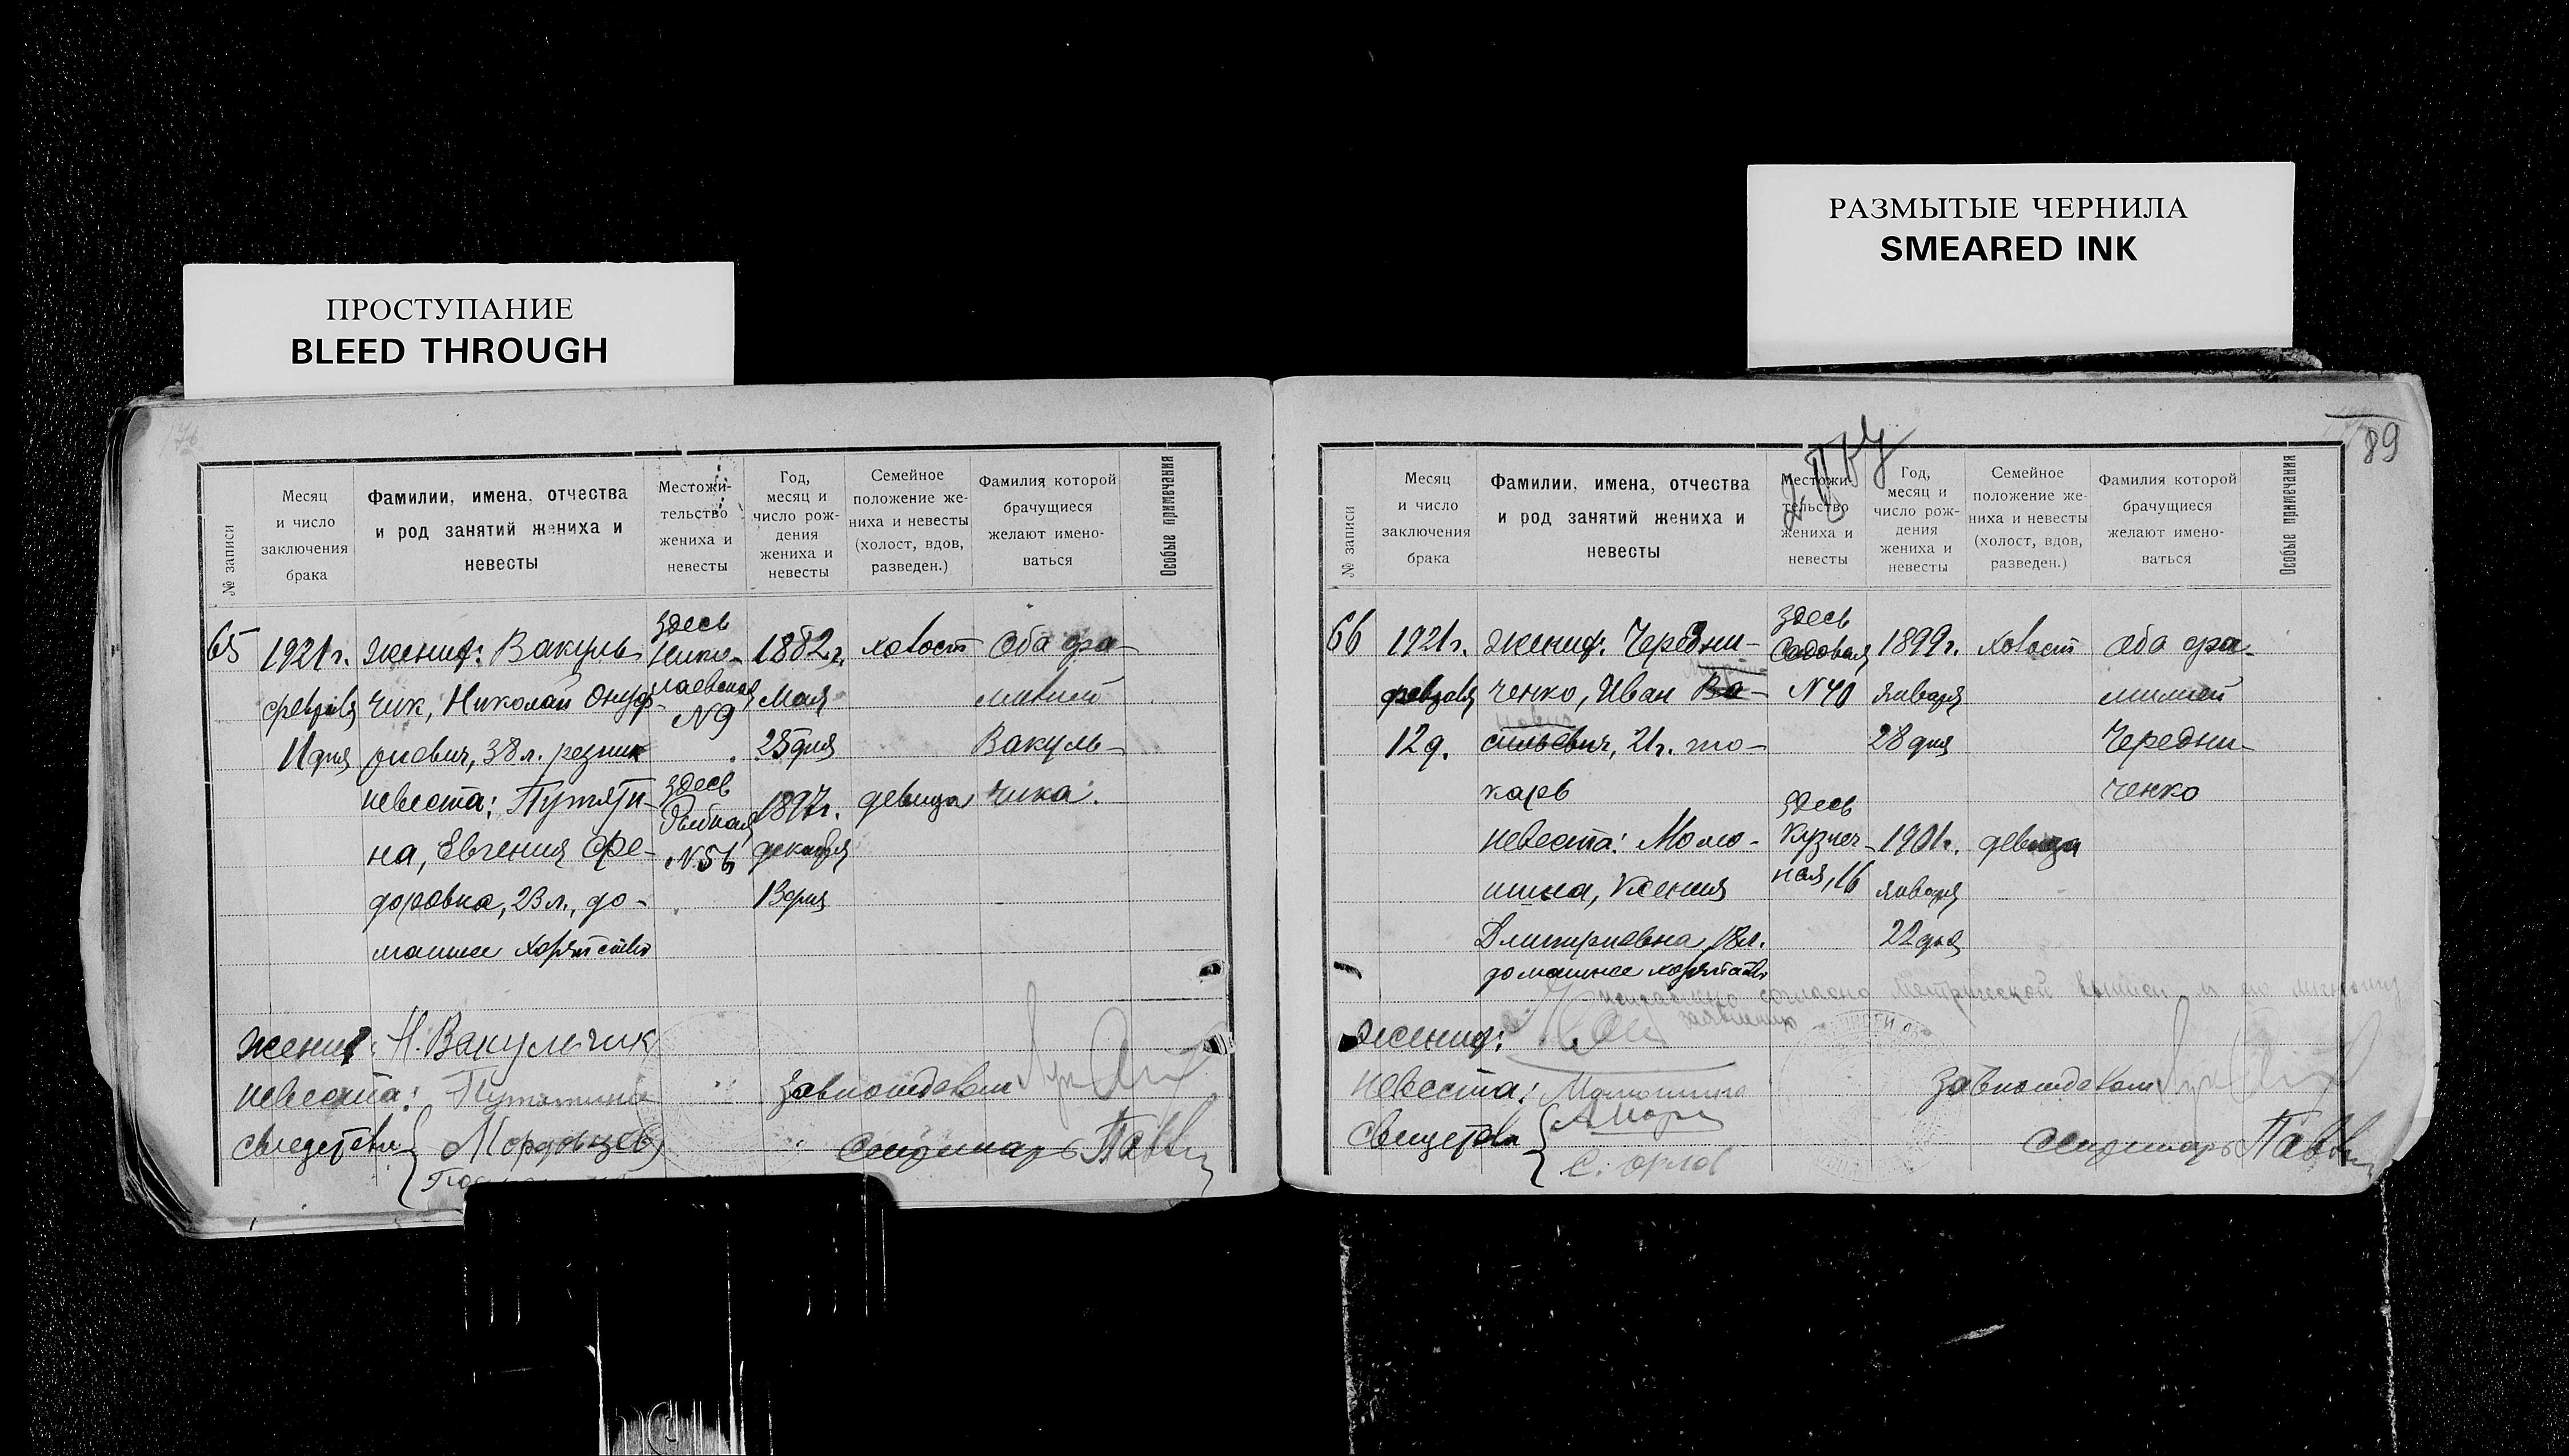 ПРОСТУПАНИЕ
BLEED THROUGH
РАЗМЫТЫЕ ЧЕРНИЛА
SMEARED INK
176
№ записи
Месяц
и число
заключения
брака
Фамилии, имена, отчества
и род занятий жениха и
невесты
Местожи-
тельство
жениха и
невесты
Год,
месяц и
число рож-
дения
жениха и
невесты
Семейное
положение же-
ниха и невесты
(холост, вдов,
разведен.)
Фамилия которой
брачущиеся
желают имено-
ваться
Особые примечания
65
1921 г.
февраля
11 дня
жених: Вакуль-
чик, Николай Онуф-
риевич, 38 л. резник
невеста: Путяти-
на, Евгения Фе-
доровна, 23 л., до-
машнее хозяйство
здесь
Нико-
лаевская
N 9
здесь
Рыбная
N 56
1882 г.
мая
25 дня
1897 г.
декабря
13 дня
холост
девица
Оба фа-
милией
Вакуль-
чика.
жених: Н. Вакульчик
невеста: Путятина
свидетели Мордовцев
Завподотделом
Секретарь
89
№ записи
Месяц
и число
заключения
брака
Фамилии, имена, отчества
и род занятий жениха и
невесты
Местожи-
тельство
жениха и
невесты
Год,
месяц и
число рож-
дения
жениха и
невесты
Семейное
положение же-
ниха и невесты
(холост, вдов,
разведен.)
Фамилия которой
брачущиеся
желают имено-
ваться
Особые примечания
66
1921 г.
февраля
12 д.
жених: Чередни-
ченко, Иван Ва-
сильевич, 21 г. то-
карь
невеста: Момо-
шина, Ксения
Дмитриевна, 18 л.
домашнее хозяйство
здесь
Садовая
N 40
здесь
Кузнеч-
ная, 16
1899 г.
января
28 дня
1901 г.
января
22 дня
холост
девица
Оба фа-
милией
Чередни-
ченко
согласно метрической выписи и
заявлению
жених:
невеста:
свидетели
С. Орлов
Завподотделом
Секретарь